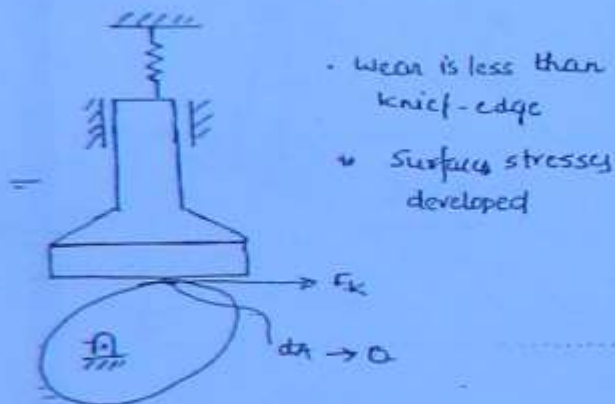 . wear is less than
knief-edge
Surfaces stresses
developed
FK
dA → 0